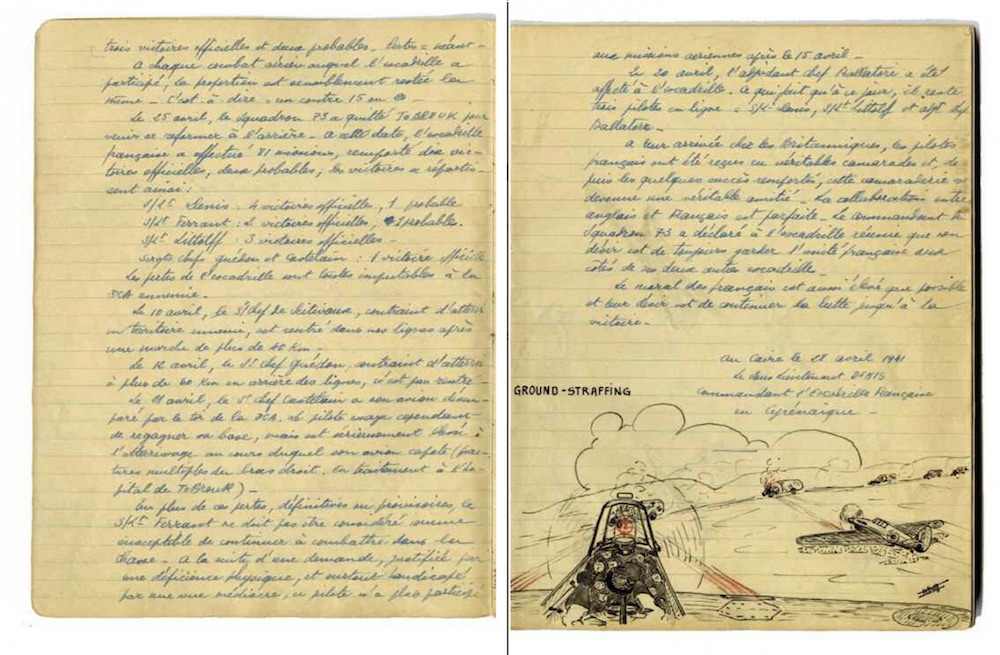 trois victoires officielles et deux probables_ Pertes = néant_
A chaque combat aérien auquel l'escadrille a
participé, la proportion est sensiblement restée la
même_ C'est à dire: un contre 15 ou
Le 25 avril, le Squadron 73 a quitté TOBROUK pour
venir se reformer à l'arrière_ A cette date, l'escadrille
française a effectué 81 missions, remporté dix vic-
toires officielles, deux probables, les victoires se répartis-
sent ainsi:
S/Lt Denis: 4 victoires officielles, 1 probable
S/Lt Ferrant: 2 victoires officielles, 1 probable.
S/Lt Littolff: 3 victoires officielles_
Sergts chefs Guédon et Castelain: 1 victoire officielle
Les pertes de l'escadrille sont toutes imputables à la
DCA ennemie_
Le 10 avril, le S/chef De Scitivaux, contraint d'atterrir
en territoire ennemi, est rentré dans nos lignes après
une marche de plus de 40 Km_
Le 12 avril, le Sgt chef Guédon, contraint d'atterrir
à plus de 60 Km en arrière des lignes, n'est pas rentré_
Le 11 avril, le St chef Castelain a son avion désem-
paré par le tir de la DCA. Le pilote essaye cependant
de regagner sa base, mais est sérieusement blessé à
l'atterrissage au cours duquel son avion capote (frac-
tures multiples du bras droit, en traitement à l'hô-
pital de TOBROUK)_
En plus de ces pertes, définitives ou provisoires, le
S/Lt Ferrant ne doit pas être considéré comme
susceptible de continuer à combattre dans la
chasse_ A la suite d'une demande, justifiée par
une déficience physique, et surtout handicapé
par une vue médiocre, ce pilote n'a plus participé
aux missions aériennes après le 15 avril_
Le 20 avril, l'adjudant chef Ballatore a été
affecté à l'escadrille. Ce qui fait qu'à ce jour, il reste
trois pilotes en ligne: S/Lt Denis, S/Lt Littolff et adjt chef
Ballatore_
A leur arrivée chez les Britanniques, les pilotes
français ont été reçus en véritables camarades et, de
puis les quelques succès remportés, cette camaraderie est
devenue une véritable amitié_ La collaboration entre
anglais et Français est parfaite_ Le Commandant du
Squadron 73 a déclaré à l'escadrille réunie que son
désir est de toujours garder l'unité française aux
côtés de ses deux autres escadrilles_
Le moral des français est aussi élevé que possible
et leur désir est de continuer la lutte jusqu'à la
victoire_
Au Caire le 28 avril 1941
Le Sous Lieutenant DENIS
Commandant l'Escadrille Française
en Cyrénaïque_
GROUND-STRAFFING